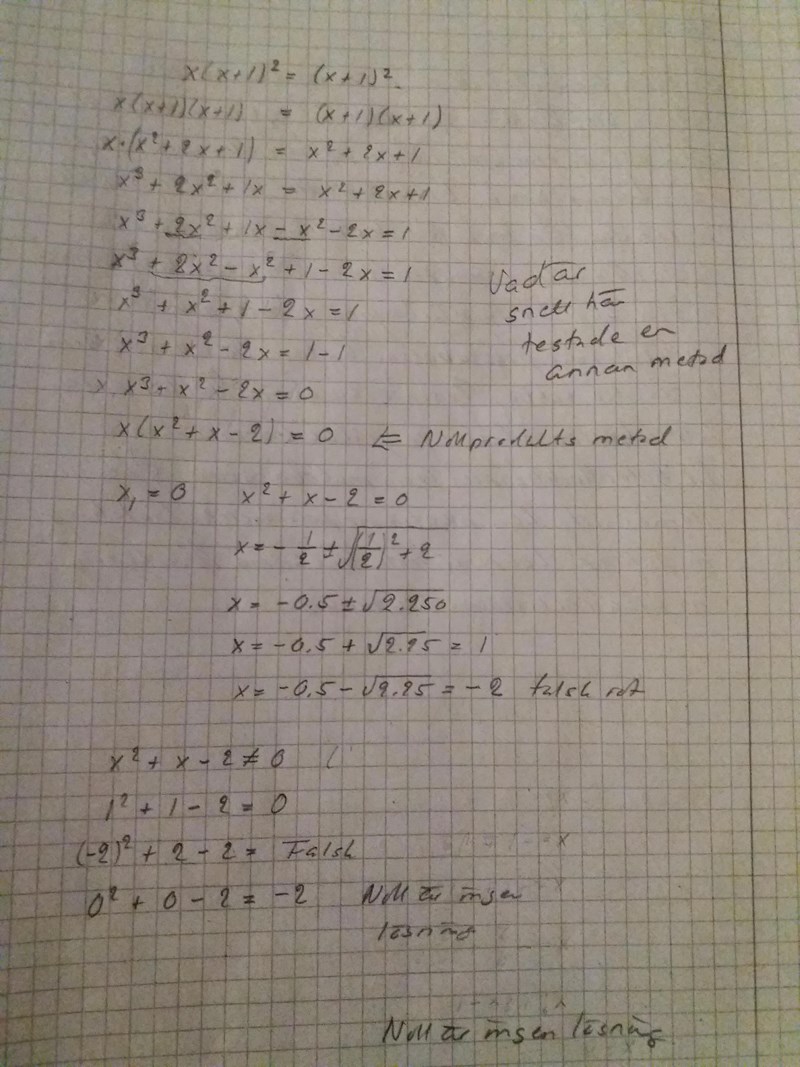 x(x+1)² = (x+1)²
x(x+1)(x+1) = (x+1)(x+1)
x·(x²+2x+1) = x²+2x+1
x³+2x²+1x = x²+2x+1
x³+2x²+1x-x²-2x=1
x³+2x²-x²+1-2x=1
x³+x²+1-2x=1
x³+x²-2x=1-1
x³+x²-2x=0
x(x²+x-2)=0 ⇐ Nollprodukts metod
Vad är
snett här
testade en
annan metod
x₁=0 x²+x-2=0
x=-1/2±√((1/2)²+2)
x=-0.5±√2.250
x=-0.5+√2.25=1
x=-0.5-√2.25=-2 falsk rot
x²+x-2≠0
1²+1-2=0
(-2)²+2-2= Falsk
0²+0-2=-2 Noll är ingen
lösning
Noll är ingen lösning